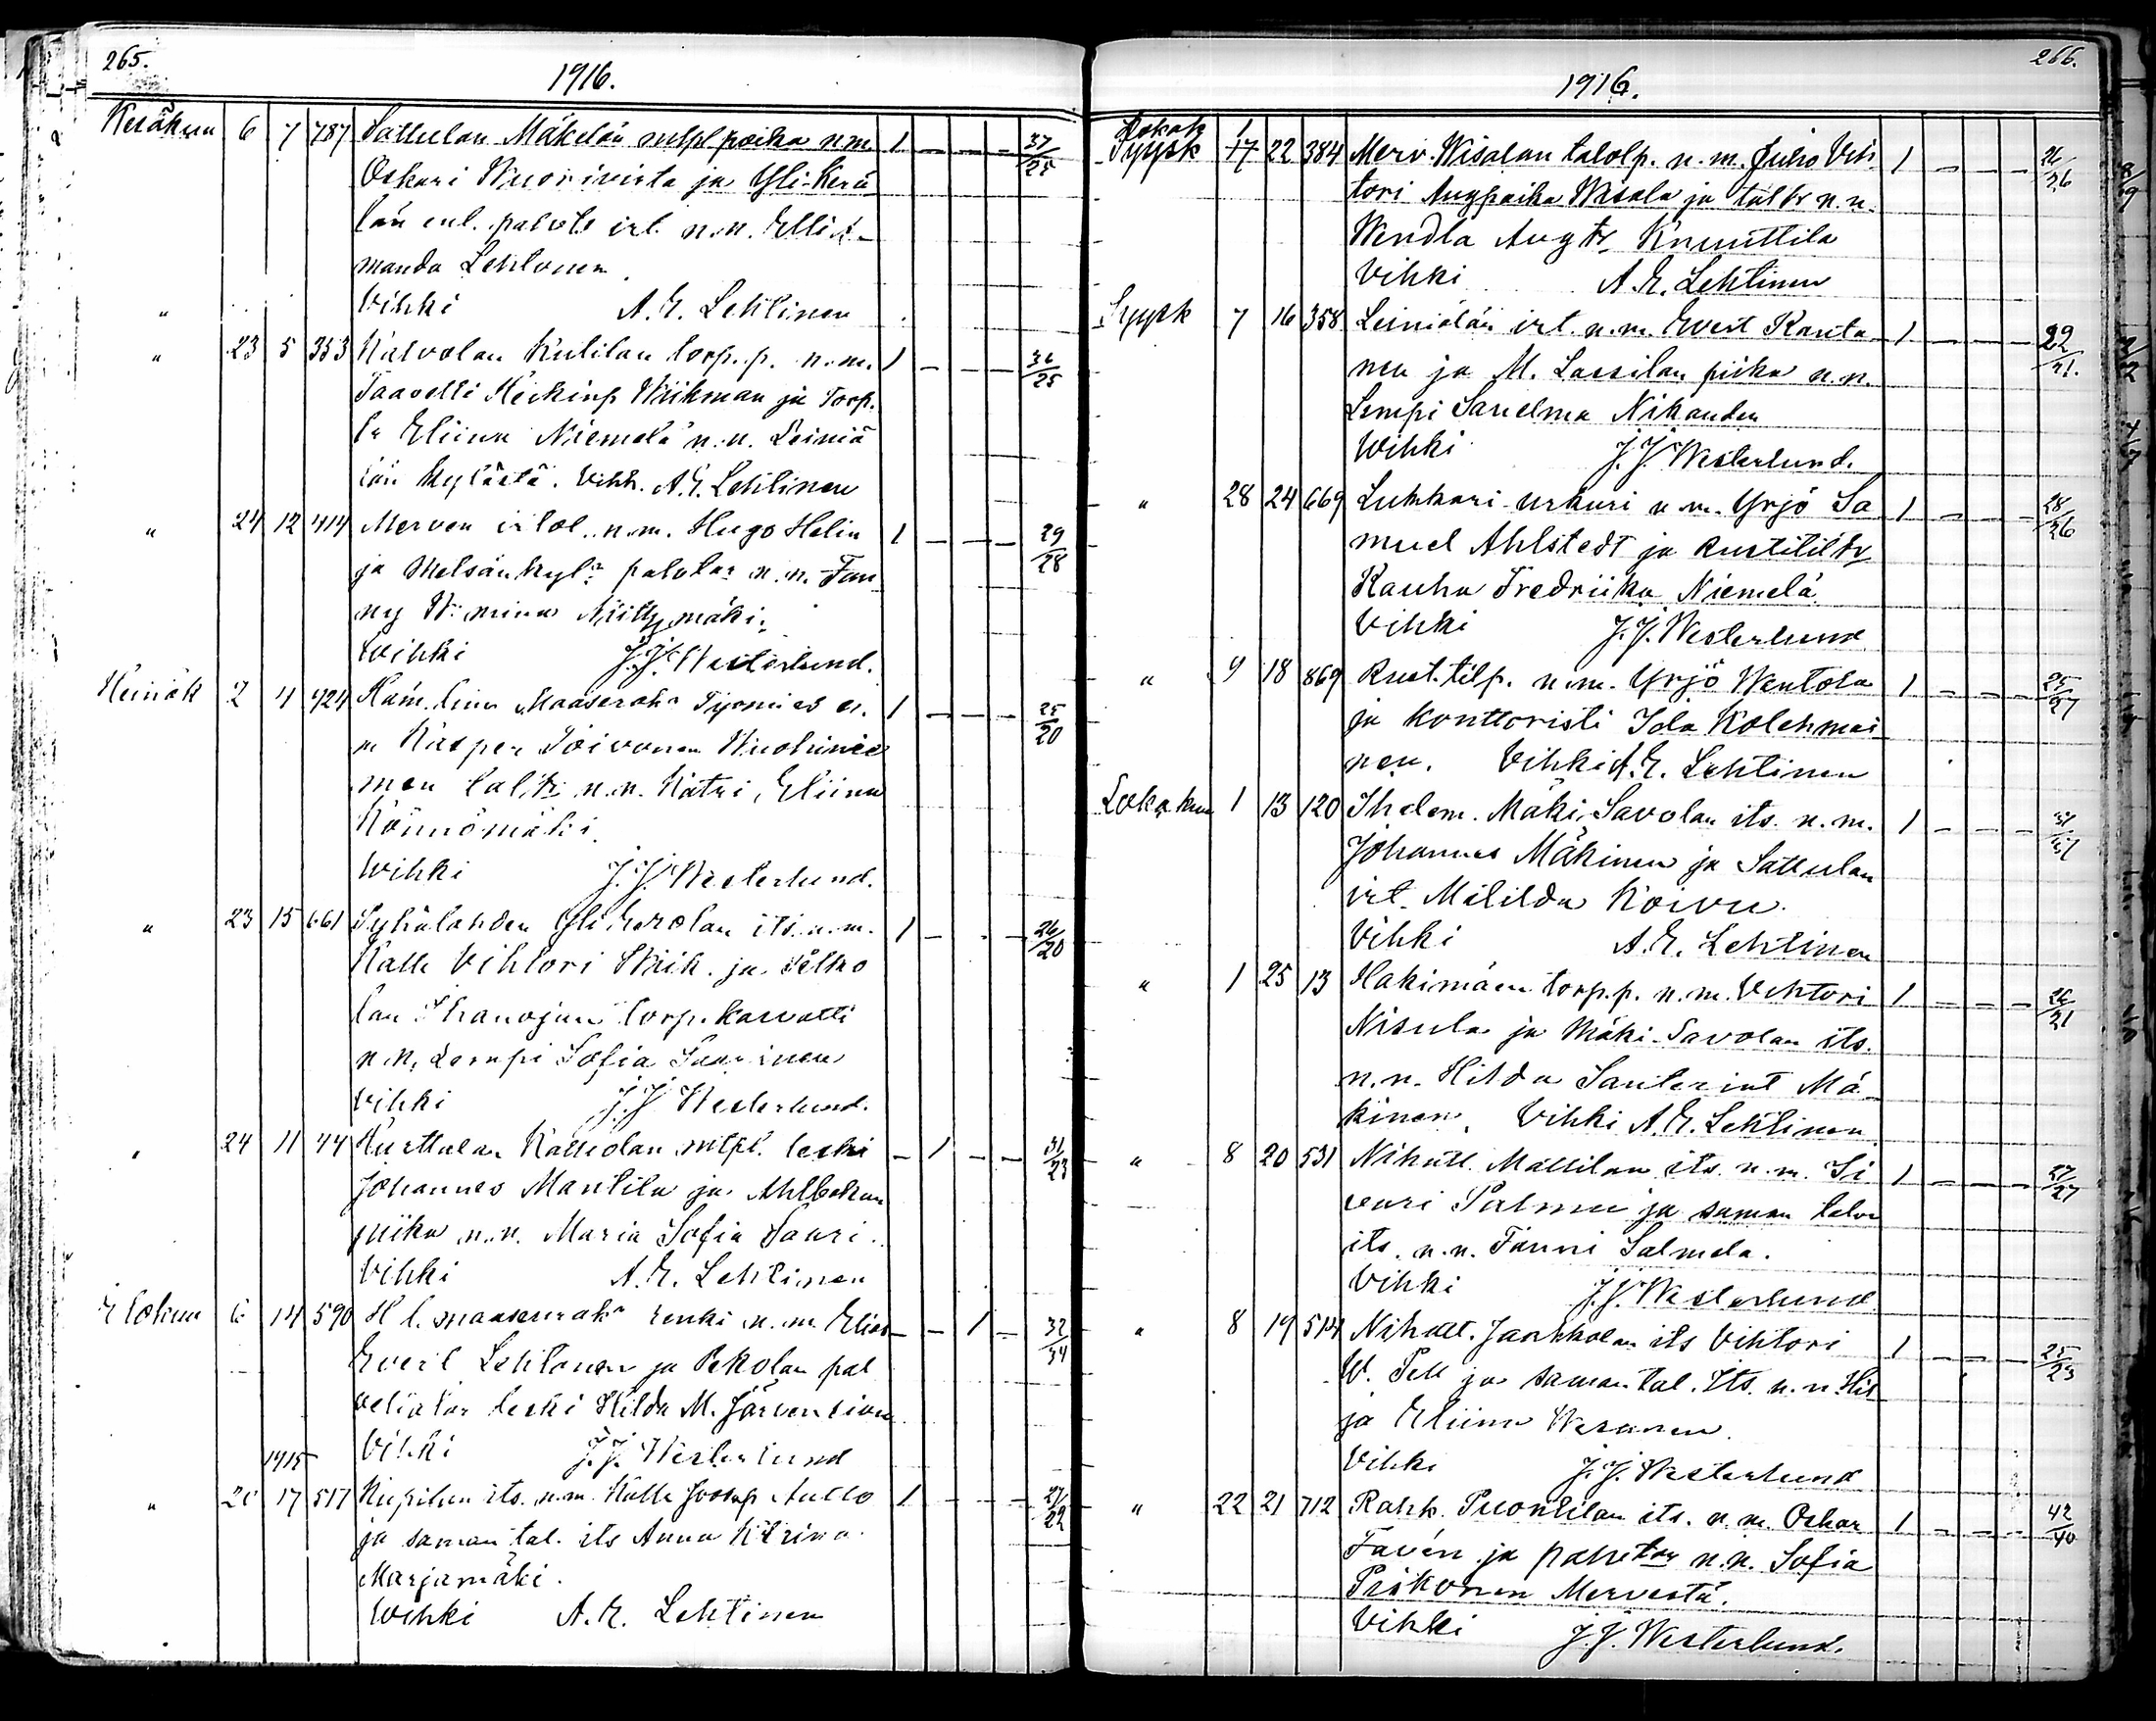 265.
1916.
Kesäkuu 6 7 787 Sattulan Mäkelän mtpl poika n.m. 1 – – – 37/25
Oskari Wuorivirta ja Yli-Kerä
län enl. palvelt irt. n.n. Elli A-
manda Lehtonen.
" Vihki A. E. Lehtinen
" 23 5 353 Katvolan Kutilan torp. p. n.m. 1 – – – 36/25
Taavetti Heikinp Wiikman ja Torp.
tr Eliina Niemelä n.n. Leiniä
län kylästä. Vihk. A. E. Lehtinen
" 24 12 414 Merven irtol. n.m. Hugo Helin 1 – – – 29/28
ja Metsänkylä palvtar n.n. Fan
ny W:mina Niittymäki.
Wihki J. J. Westerlund.
Heinäk 2 4 424 Häm. linn Maaseurak Työmies n. 1 – – – 25/20
m Kasper Toivonen Wuohinie
men tal. tr n.n. Katri, Eliina
Könnömäki.
Wihki J. J. Westerlund.
" 23 15 661 Syhälahden Yli Eerolan its. n.m. 1 – – – 26/20
Kalle Vihtori Wiik. ja Pelko
lan Ihanojan torp. kasvatti
n.n. Lempi Sofia Saarinen
Vihki J. J. Westerlund.
" 24 11 44 Kurttulan Kalliolan mtpl. leski – 1 – – 31/23
Johannes Mantila ja Ahlbackan
piika n.n. Maria Sofia Saari.
Vihki A. E. Lehtinen
Elokuu 6 14 590 H l. maaseurak renki n.m. Elias – – 1 – 32/34
Evert Lehtonen ja Pekolan pal
velijatar leski Hilda M. Järvensivu
Vihki J. J. Westerlund
1915
" 20 17 517 Kiipilan its. n.m. Kalle Joosep Aulio 1 – – – 27/22
ja saman tal. its Anna Katrina
Marjamäki.
Wihki A. E. Lehtinen
266.
1916.
Syysk 17 22 384 Merv. Wisalan talolp. n.m. Juho Vih 1 – – – 26/26
tori Augpoika Wisala ja taltr n.n.
Wendla Aug tr Knuuttila
Vihki A. E. Lehtinen
Syysk 7 16 358 Leiniälän irt. n.m. Evert Kanta 1 – – – 22/21.
nen ja M. Lassilan piika n.n.
Lempi Sanelma Nikander
Wihki J. J. Westerlund.
" 28 24 669 Lukkari-urkuri n.m. Yrjö Sa 1 – – – 28/26
muel Ahlstedt ja Rustitiltr
Rauha Fredriika Niemelä
Vihki J. J. Westerlund
" 9 18 869 Rust. tilp. n.m. Yrjö Wentola 1 – – – 25/27
ja konttoristi Ida Kolehmai
nen. Vihki A. E. Lehtinen
Lokakuu 1 13 120 Ihalem. Mäki-Savolan its. n.m. 1 – – –
Johannes Mäkinen ja Sattulan
irt. Matilda Koivu.
Vihki A. E. Lehtinen
" 1 25 13 Hakimäen torp. p. n.m. Vihtori 1 – – – 26/21
Nisula ja Mäki-Savolan its.
n.n. Hilda Santerint Mä
kinen. Vihki A. E. Lehtinen
" 8 20 531 Nihatt. Mattilan its. n.m. Si 1 – – – 27/27
vari Palmu ja saman talon
its. n.n. Fanni Salmela.
Vihki J. J. Westerlund
" 8 19 514 Nihatt. Jaakkolan its Vihtori 1 – – – 25/23
W. Pell ja saman tal. Its. n.n Hil
ja Eliina Wesanen.
Vihki J. J. Westerlund
" 22 21 712 Rahk. Puontilan its. n.m. Oskar 1 – – – 42/40
Favén ja palvetar n.n. Sofia
Piikonen Mervestä.
Vihki J. J. Westerlund.